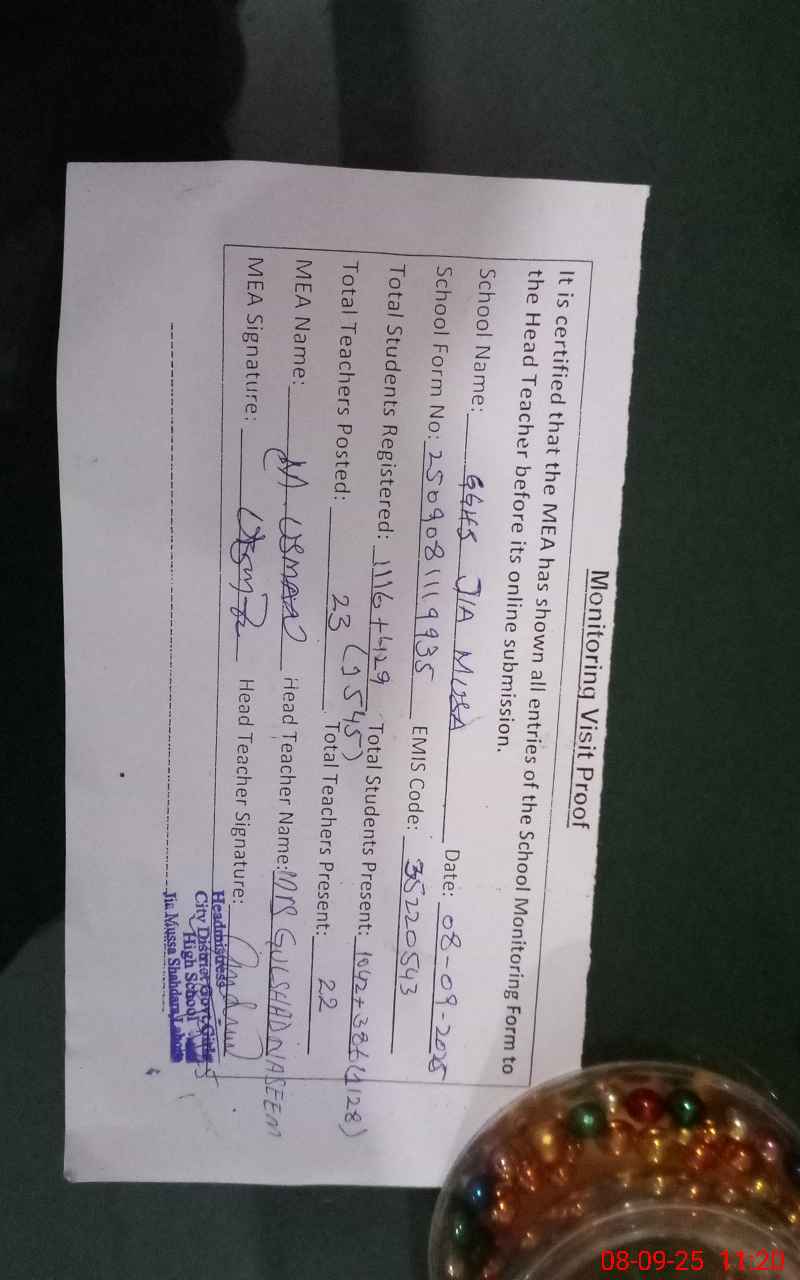 Monitoring Visit Proof
It is certified that the MEA has shown all entries of the School Monitoring Form to
the Head Teacher before its online submission.
School Name: GGHS JIA MUSA Date: 08-09-2025
School Form No: 2509081119935 EMIS Code: 35220543
Total Students Registered: 1116+429 (1545) Total Students Present: 1042+386 (1128)
Total Teachers Posted: 23 Total Teachers Present: 22
MEA Name: USMAN Head Teacher Name: MRS GULSHAD NASEEM
MEA Signature: Head Teacher Signature:
Headmistress
City District Govt. Girls
High School
Jia Mussa Shahdara Lahore
08-09-25 11:20